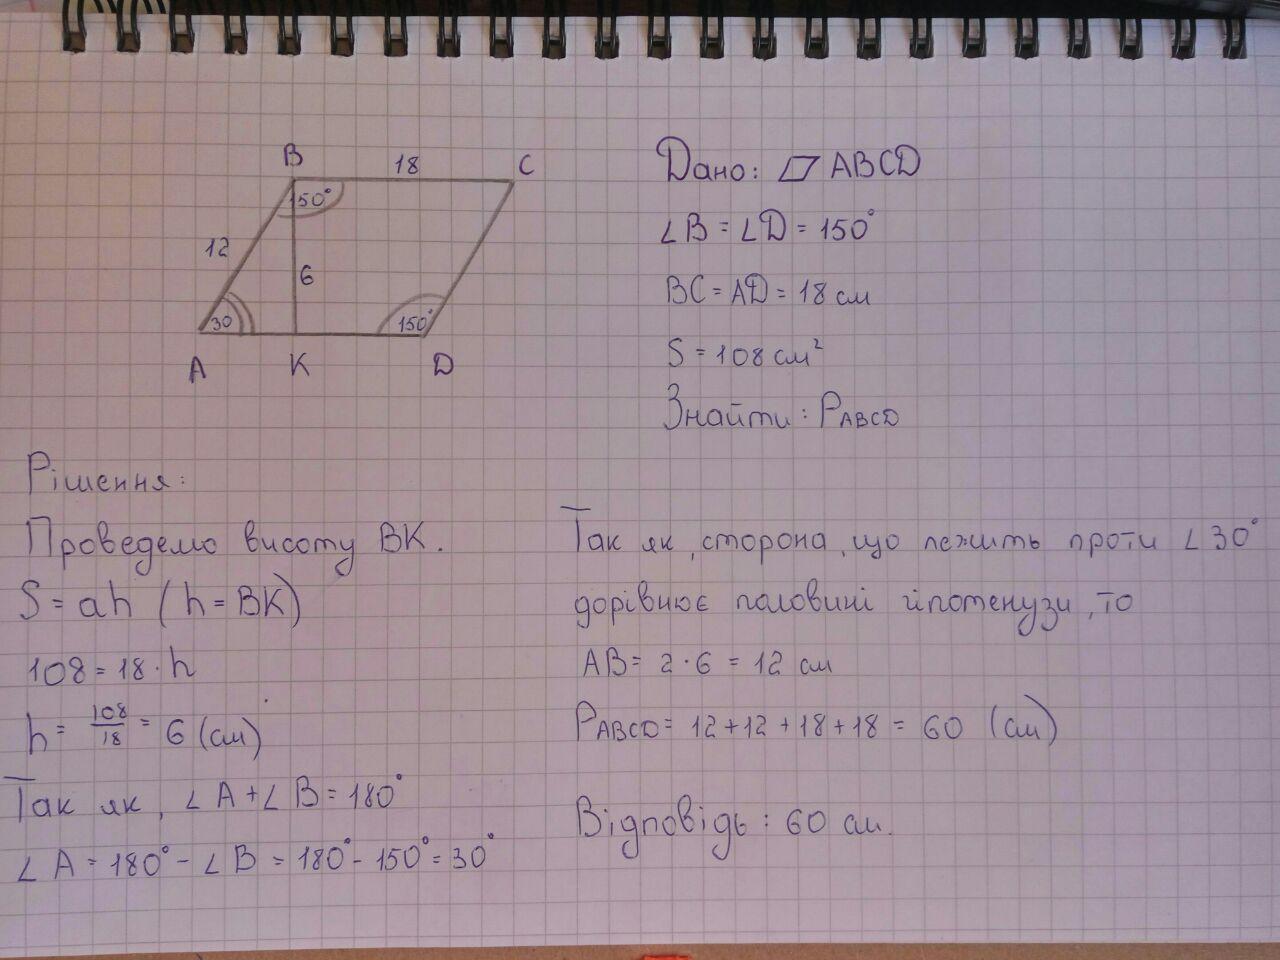 B
18
C
150°
12
6
30
150°
A
K
D
Дано: ▱ ABCD
∠B = ∠D = 150°
BC = AD = 18 см
S = 108 см²
Знайти: PABCD
Рішення:
Проведемо висоту BK.
S = ah (h = BK)
108 = 18 · h
h = 108/18 = 6 (см)
Так як, ∠A + ∠B = 180°
∠A = 180° - ∠B = 180° - 150° = 30°
Так як, сторона, що лежить проти ∠30°
дорівнює половині гіпотенузи, то
AB = 2 · 6 = 12 см
PABCD = 12 + 12 + 18 + 18 = 60 (см)
Відповідь: 60 см.